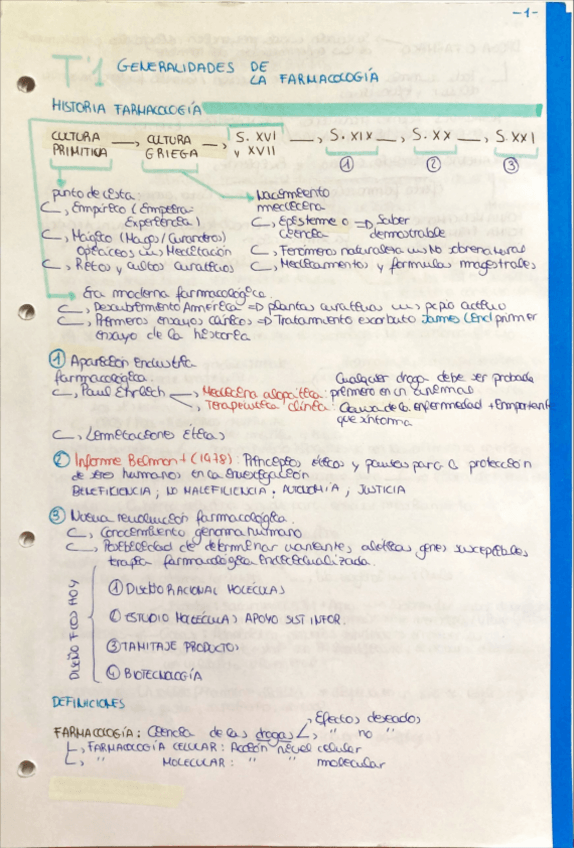 -1-
T.1 GENERALIDADES DE
LA FARMACOLOGÍA
HISTORIA FARMACOLOGÍA
CULTURA PRIMITIVA → CULTURA GRIEGA → S. XVI y XVII → S. XIX → S. XX → S. XXI
① ② ③
punto de vista
↳ Empírico (Empeiria-
Experiencia)
↳ Mágico (Mago/Curandero)
opiáceos ⟿ Meditación
↳ Ritos y cultos curativos
Nacimiento
medicina
↳ Episteme o ⇒ Saber
ciencia demostrable
↳ Fenómeno naturaleza ⟿ No sobrenatural
↳ Medicamentos y formulas magistrales
Era moderna farmacológica.
↳ Descubrimiento América ⇒ plantas curativas ⟿ pcpio activo
↳ Primeros ensayos clínicos ⇒ Tratamiento escorbuto James Lind primer
ensayo de la historia
① Aparición industria
farmacológica
↳ Paul Ehrlich → Medicina alopática: Cualquier droga debe ser probada
primero en un animal
→ Terapéutica clínica: Causa de la enfermedad + importante
que síntoma
↳ Limitaciones éticas
② Informe Belmont (1978): Principios éticos y pautas para la protección
de seres humanos en la investigación
BENEFICIENCIA; NO MALEFICIENCIA; AUTONOMÍA; JUSTICIA
③ Nueva revolución farmacológica.
↳ Conocimiento genoma humano
↳ Posibilidad de determinar variantes alélicas genes susceptibles
terapia farmacológica individualizada.
DISEÑO FCOS HOY
① DISEÑO RACIONAL MOLÉCULAS
② ESTUDIO MOLÉCULAS APOYO SIST INFOR.
③ TAMITAJE PRODUCTOS
④ BIOTECNOLOGÍA
DEFINICIONES
FARMACOLOGÍA: Ciencia de las drogas → Efectos deseados
→ " no "
↳ FARMACOLOGÍA CELULAR: Acción nivel celular
↳ " MOLECULAR: " " molecular